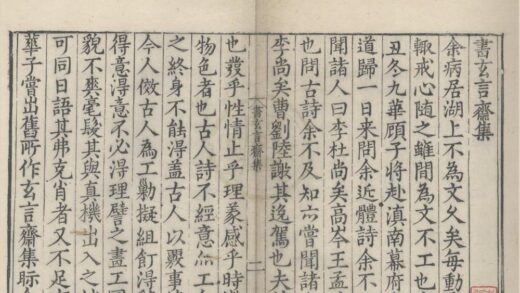 書玄言齋集
余病居湖上不為文乆矣每動
輙戒心随之雖間為文不工也
丑冬九華顧子將赴滇南幕府
道歸一日来問余近體詩余不
聞諸人曰李杜尚矣髙岑王孟
也問古詩余不及知亦嘗聞諸
李尚矣曹劉陸謝其逸駕也夫
書玄言齋集
也發乎性情止乎理義感乎時
物色者也古人詩不經意工
之終身不能得盖古人以觸事
今人倣古人為工勦擬組飣得
得意得意不必得理譬之畫工
貌不爽毫髮其與真機出入之
可同日語其弗克肖者又不足
華子嘗出舊所作玄言齋集眎